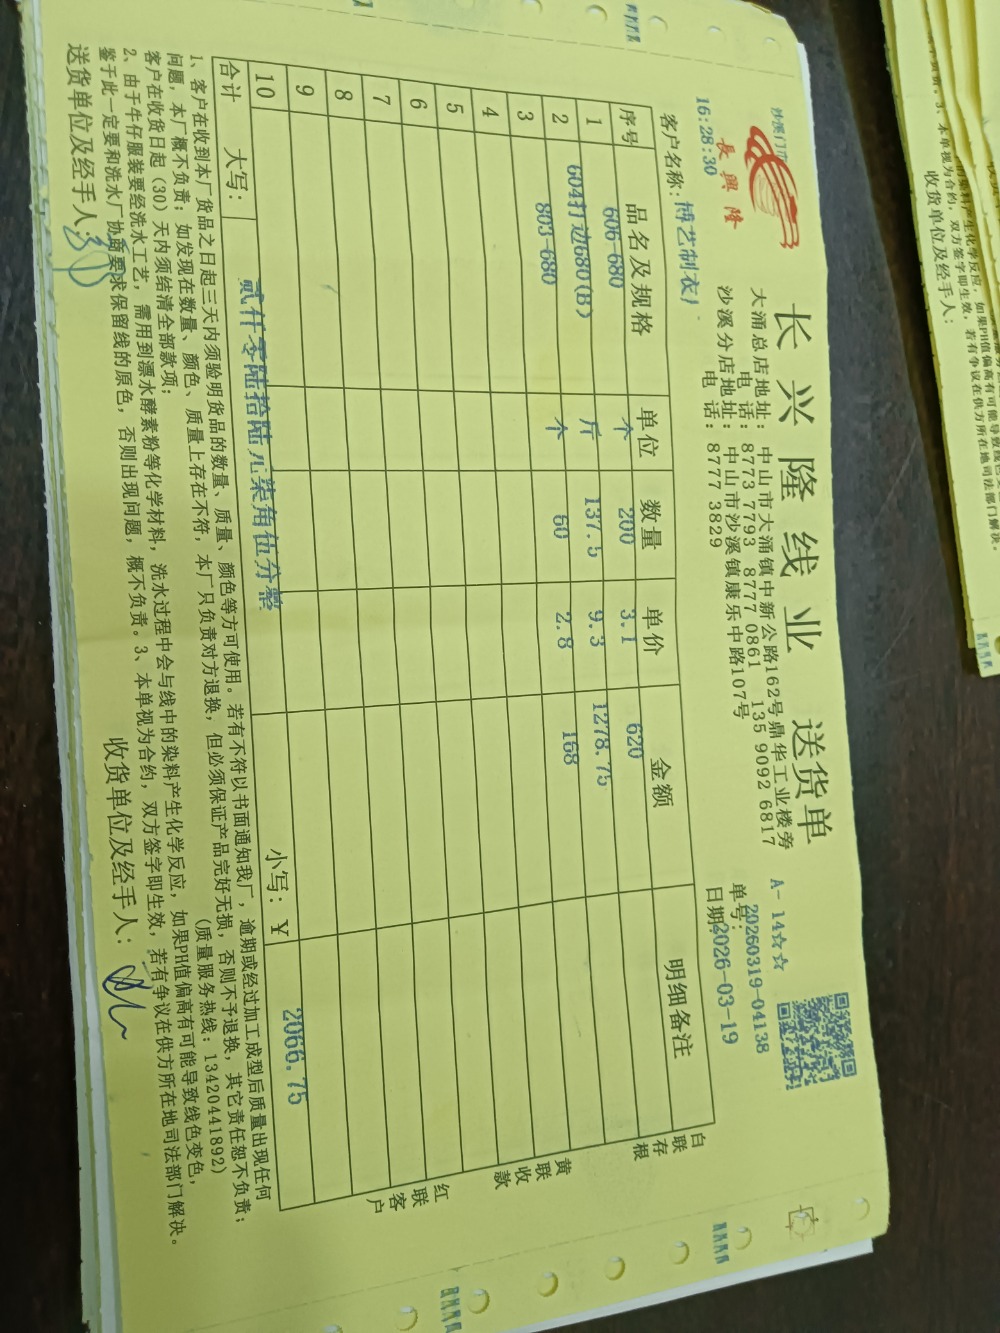 沙溪门市
長興隆
16:28:30
长兴隆线业 送货单
大涌总店地址:中山市大涌镇中新公路162号鼎华工业楼旁
电 话:8773 7793 8777 0861 135 9092 6817
沙溪分店地址:中山市沙溪镇康乐中路107号
电 话:8777 3829
A- 14☆☆
单号:20260319-04138
日期:2026-03-19
客户名称:博艺制衣厂
序号 品名及规格 单位 数量 单价 金额 明细备注
1 606-680 个 200 3.1 620
2 604打边680(B) 斤 137.5 9.3 1278.75
3 803-680 个 60 2.8 168
4
5
6
7
8
9
10
合计 大写: 贰仟零陆拾陆元柒角伍分整 小写:¥ 2066.75
白联存根
黄联收款
红联客户
1、客户在收到本厂货品之日起三天内须验明货品的数量、质量、颜色等方可使用。若有不符以书面通知我厂,逾期或经过加工成型后质量出现任何
问题,本厂概不负责;如发现在数量、颜色、质量上存在不符,本厂只负责对方退换,但必须保证产品完好无损,否则不予退换,其它责任恕不负责;
客户在收货日起(30)天内须结清全部款项; (质量服务热线:13420441892)
2、由于牛仔服装要经洗水工艺,需用到漂水酵素粉等化学材料,洗水过程中会与线中的染料产生化学反应,如果PH值偏高有可能导致线色变色,
鉴于此一定要和洗水厂协商要求保留线的原色,否则出现问题,概不负责。3、本单视为合约,双方签字即生效,若有争议在供方所在地司法部门解决。
送货单位及经手人: 收货单位及经手人:
3、本单视为合约,双方签字即生效,若有争议在供方所在地司法部门解决。
收货单位及经手人: